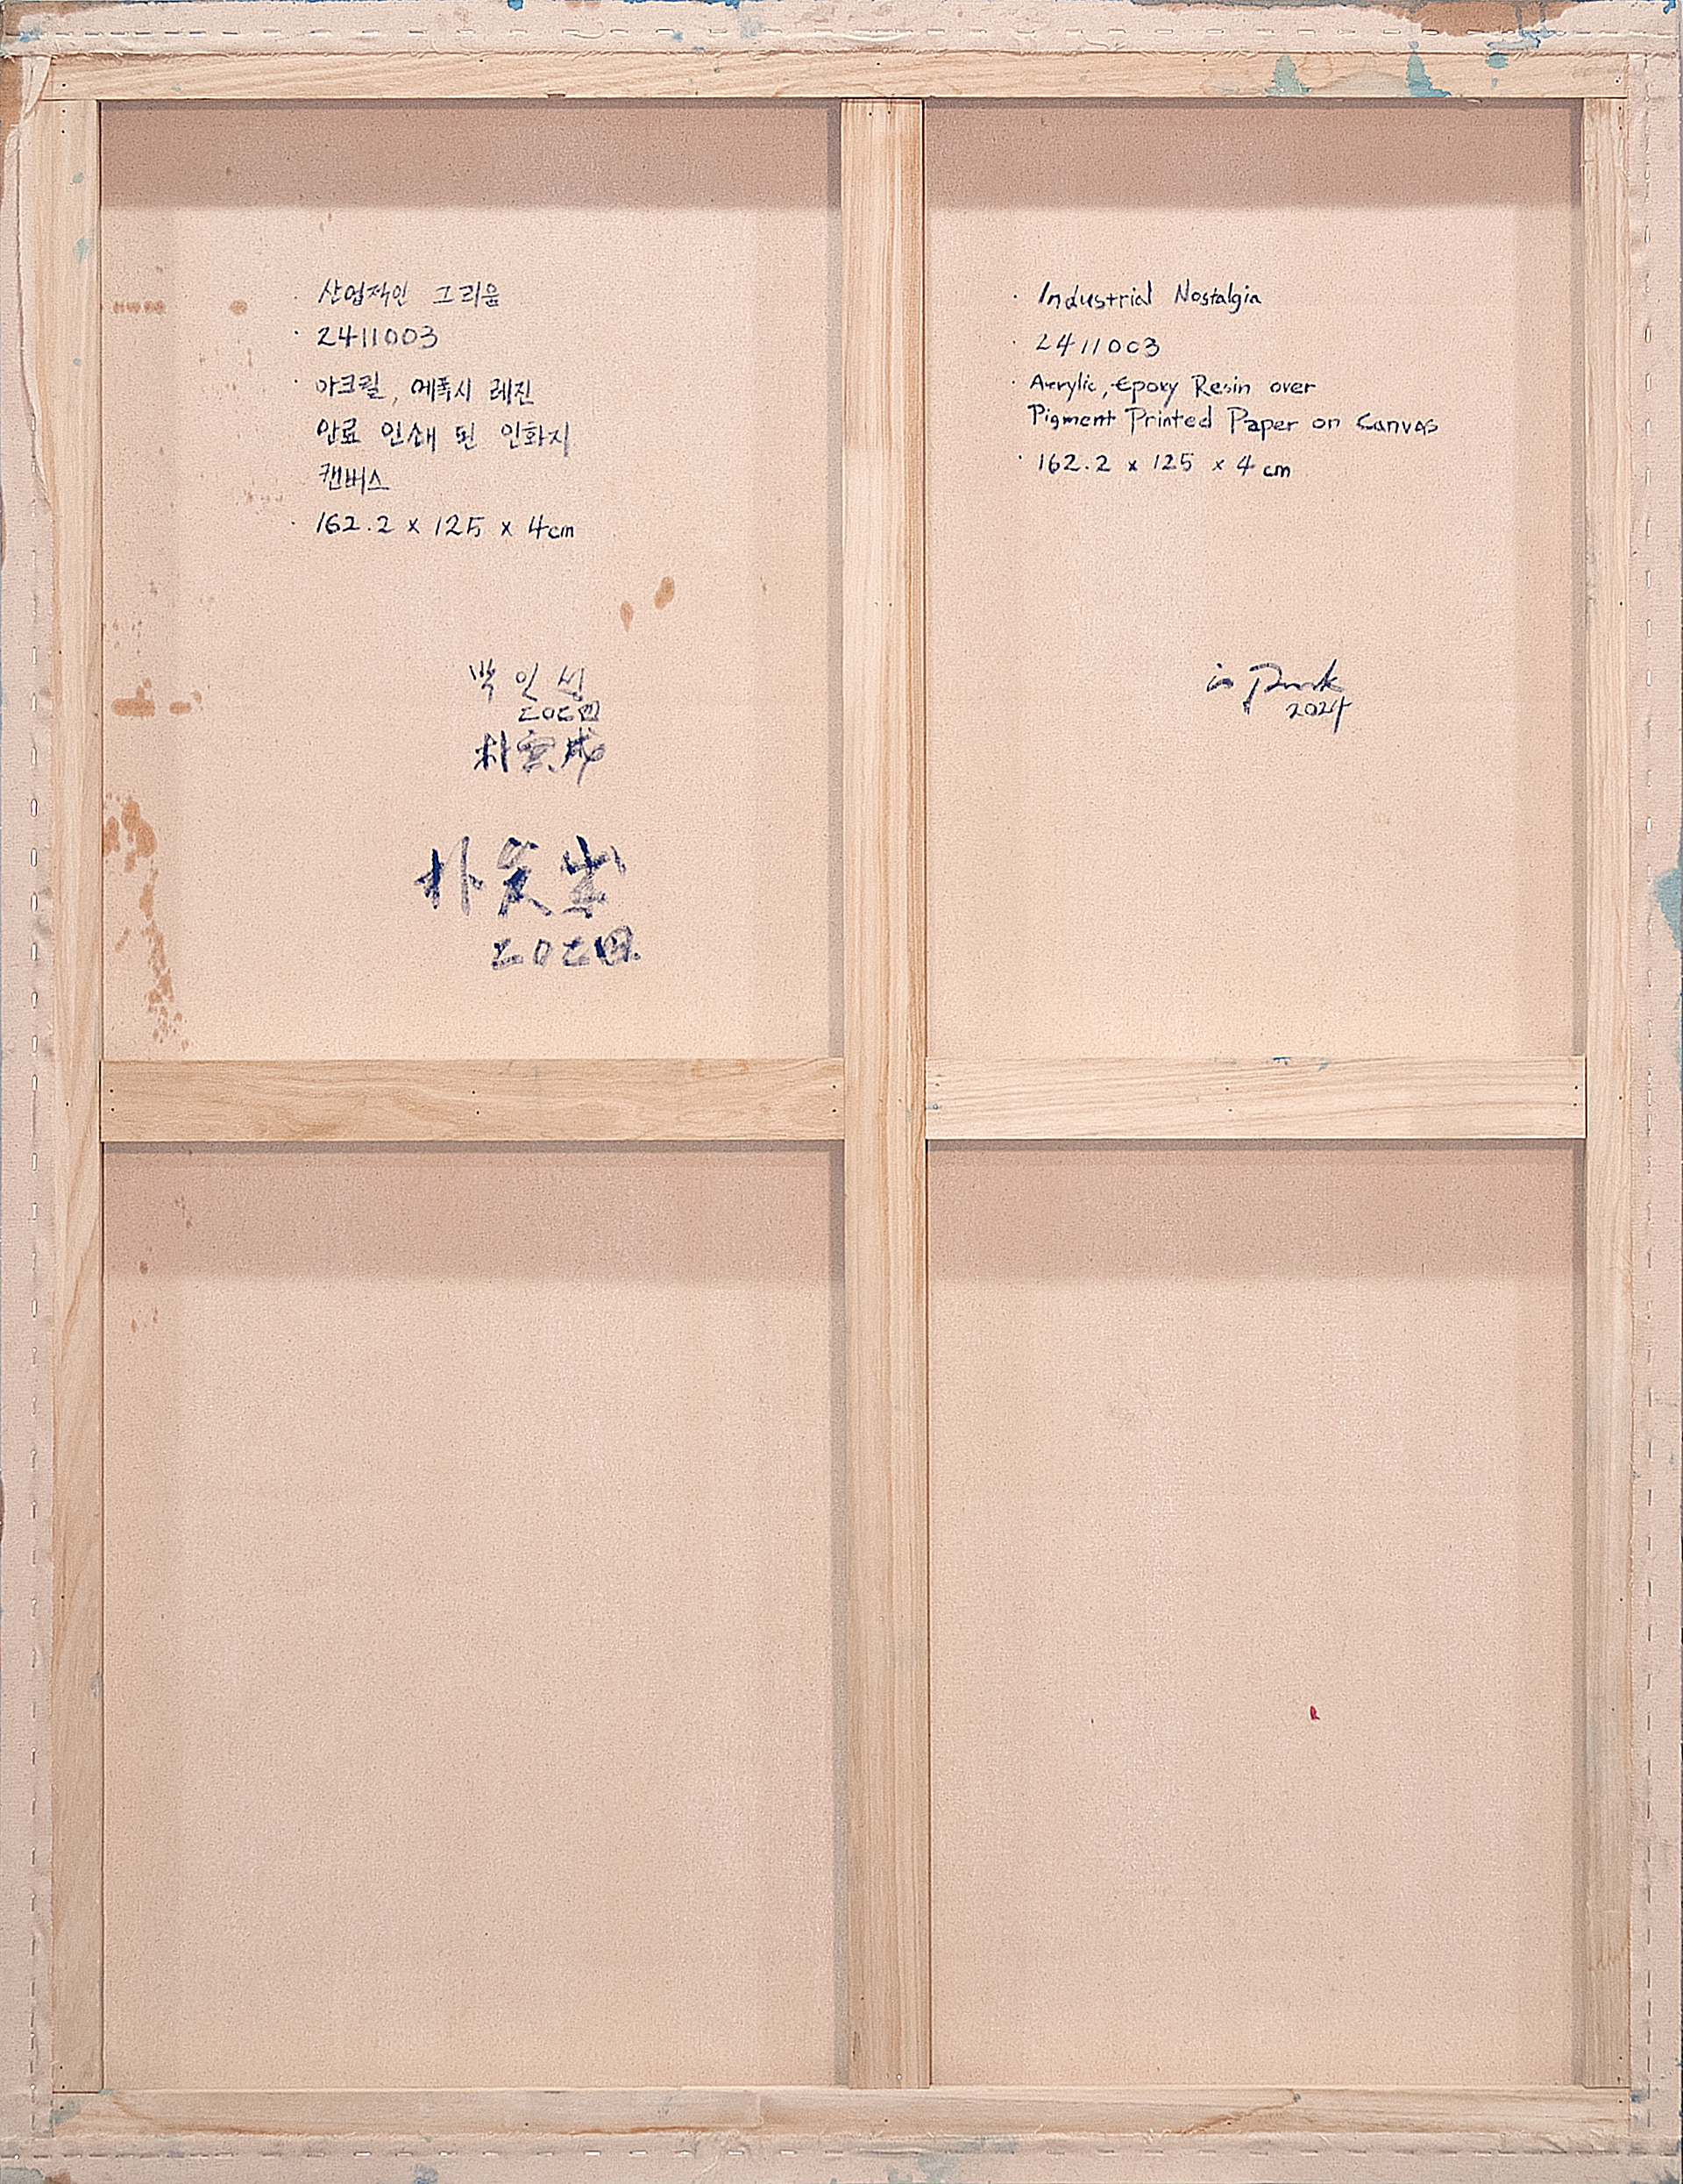 · 산업적인 그리움
· 2411003
· 아크릴, 에폭시 레진
안료 인쇄 된 인화지
캔버스
· 162.2 x 125 x 4cm
박 일 성
朴 成
朴
· Industrial Nostalgia
· 2411003
· Acrylic, Epoxy Resin over
Pigment Printed Paper on Canvas
· 162.2 x 125 x 4 cm
Park
2024